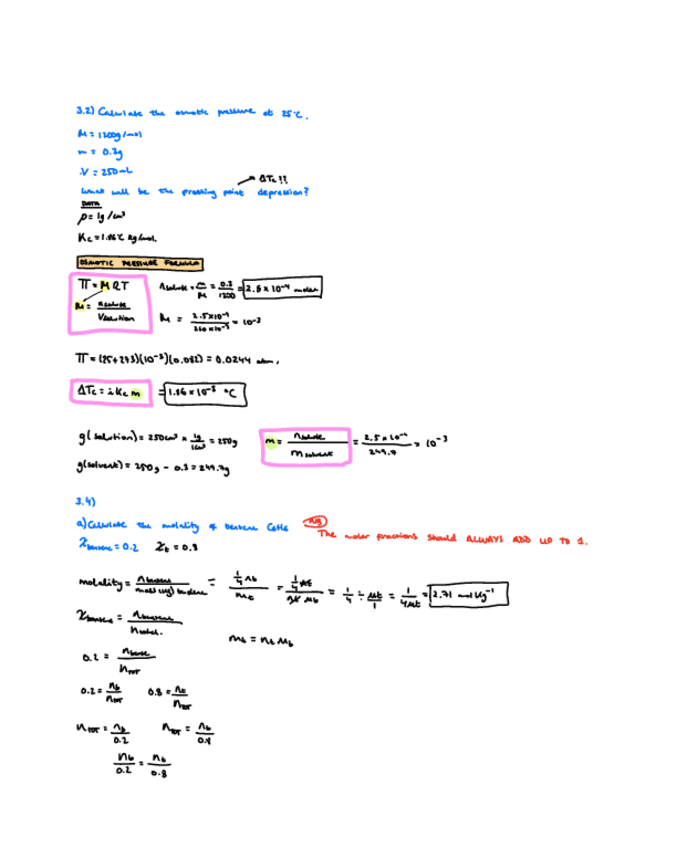 3.2) Calculate the osmotic pressure at 25°C.
M = 1200g/mol
m = 0.3g
V = 250mL
→ ΔTc ??
What will be the freezing point depression?
DATA
ρ = 1g/cm³
Kc = 1.86°C kg/mol.
OSMOTIC PRESSURE FORMULA
Π = MRT
M = nsolute / Vsolution
nsolute = m/M = 0.3/1200 = 2.5 x 10⁻⁴ moles
M = 2.5x10⁻⁴ / 250x10⁻³ = 10⁻³
Π = (25+273)(10⁻³)(0.082) = 0.0244 atm.
ΔTc = i Kc m = 1.86 x 10⁻³ °C
g(solution) = 250cm³ x 1g/1cm³ = 250g
g(solvent) = 250g - 0.3 = 249.7g
m = nsolute / msolvent = 2.5 x 10⁻⁴ / 249.7 = 10⁻³
3.4)
a) Calculate the molality of benzene C6H6
NB The molar fractions should ALWAYS ADD UP TO 1.
χbenzene = 0.2 χt = 0.8
molality = nbenzene / mass (kg) = ¼ nt / mt = ¼ nt / nt Mt = ¼ ÷ Mt/1 = 1/4Mt = 2.71 mol kg⁻¹
χbenzene = nbenzene / ntotal.
mt = nt Mt
0.2 = nbenze / nTOT
0.2 = nb/nTOT 0.8 = nt/nTOT
nTOT = nb/0.2 nTOT = nt/0.8
nb/0.2 = nt/0.8